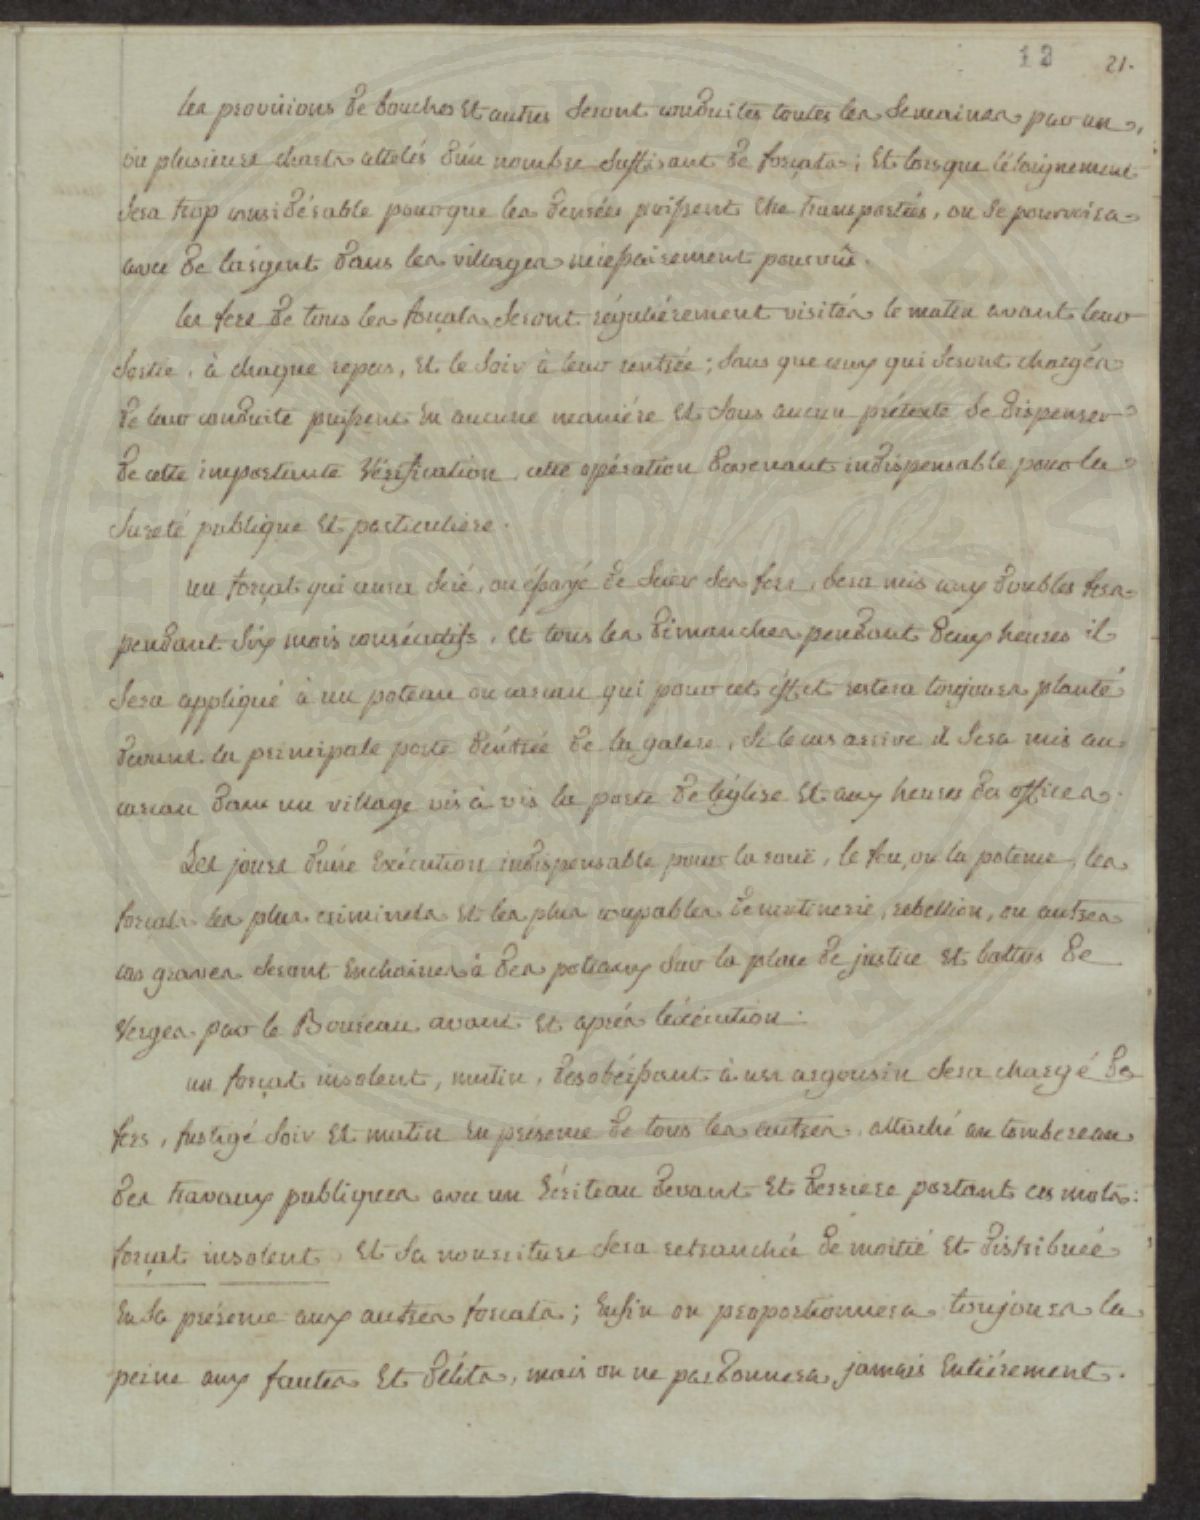 13 21.
les provisions de bouches et autres seront conduites toutes les semaines par un,
ou plusieurs chars attelés d'un nombre suffisant de forçats; et lorsque l'éloignement
sera trop considérable pour que les denrées puissent être transportées, on se pourvoira
avec de l'argent dans les villages nécessairement pourvûs.
les fers de tous les forçats seront régulièrement visités le matin avant leur
sortie, à chaque repas, et le soir à leur rentrée; sans que ceux qui seront chargés
de leur conduite puissent en aucune manière et sous aucun prétexte se dispenser
de cette importante vérification, cette opération devenant indispensable pour la
sureté publique et particulière.
un forçat qui aura scié, ou éssayé de scier ses fers, sera mis aux doubles fers
pendant six mois consécutifs, et tous les dimanches pendant deux heures il
sera appliqué à un poteau ou carcan qui pour cet éffet restera toujours planté
devant la principale porte d'entrée de la galere, si le cas arrive il sera mis au
carcan dans un village vis à vis la porte de l'église et aux heures des offices.
Les jours d'une exécution indispensable pour la rouë, le feu, ou la potence, les
forçats les plus criminels et les plus coupables de mutinerie, rebellion, ou autres
cas graves seront enchainés à des poteaux sur la place de justice et battus de
verges par le Boureau avant et après l'éxécution.
un forçat insolent, mutin, desobéissant à un argousin sera chargé de
fers, fustigé soir et matin en présence de tous les autres, attaché au tombereau
des travaux publiques avec un écriteau devant et derriere portant ces mots:
forçat insolent et sa nourriture sera retranchée de moitié et distribuée
en sa présence aux autres forcats; enfin on proportionnera toujours la
peine aux fautes et délits, mais on ne pardonnera jamais entièrement.